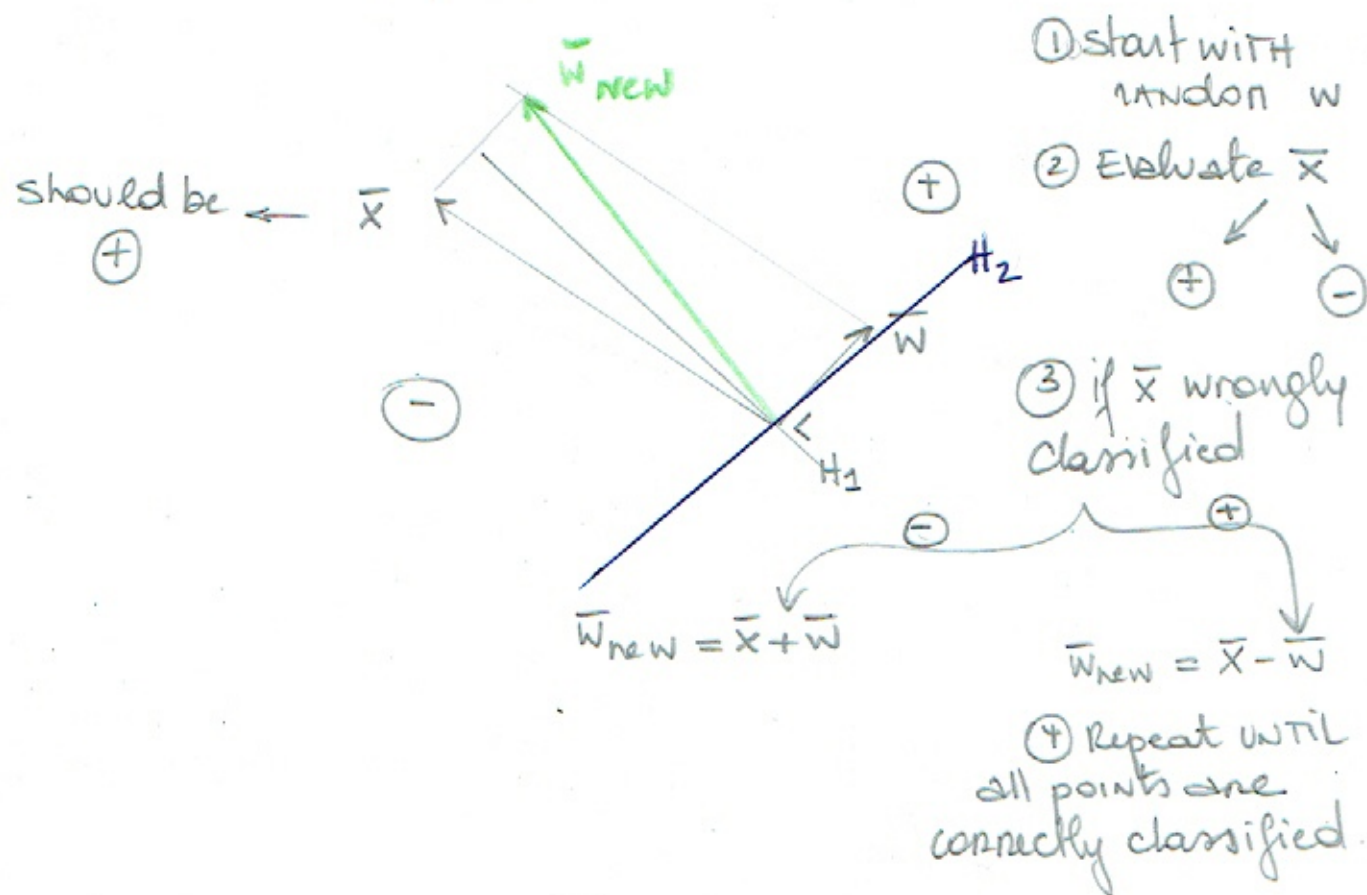 w̄ new
should be
⊕
x̄
⊕
H2
w̄
H1
⊖
① Start WITH
RANdon w
② Evaluate x̄
⊕ ⊖
③ if x̄ wrongly
classified
⊖ ⊕
w̄new = x̄ + w̄
w̄new = x̄ - w̄
④ Repeat UNTIL
all points are
correctly classified.